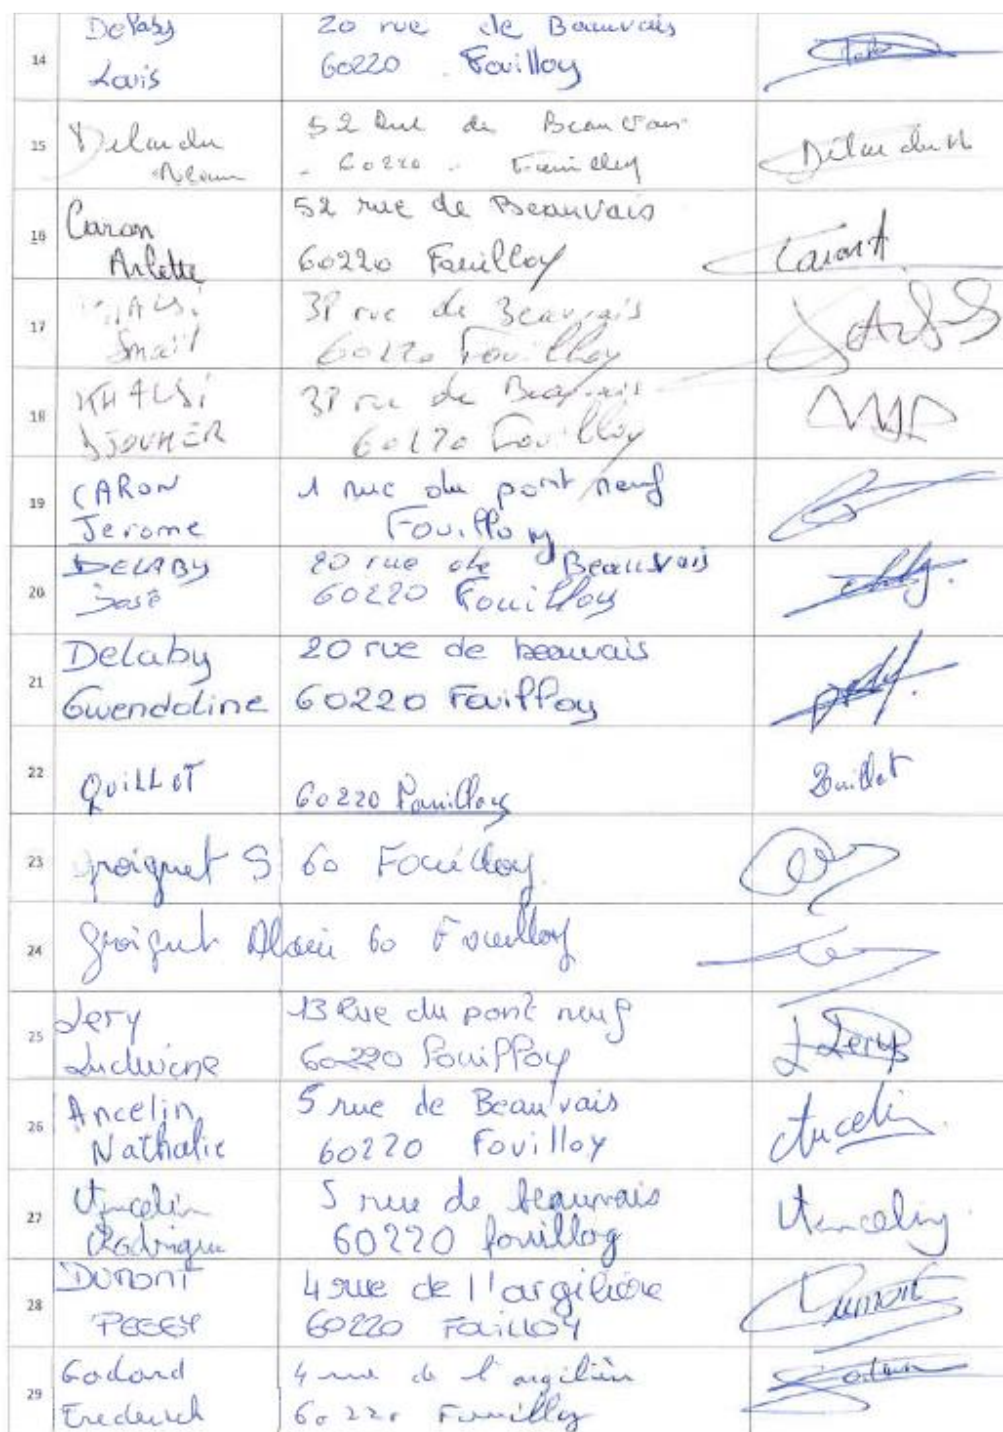 14
Delaby
Louis
20 rue de Beauvais
60220 Fouilloy
15
52 Rue de Beauvais
60220 Fouilloy
16
Caron
Arlette
52 rue de Beauvais
60220 Fouilloy
Caron A
17
Smail
rue de Beauvais
60220 Fouilloy
18
KHALSi
DJOUHER
rue de Beauvais
60220 Fouilloy
19
CARON
Jerome
1 rue du pont neuf
Fouilloy
20
DELABY
José
20 rue de Beauvais
60220 Fouilloy
21
Delaby
Gwendoline
20 rue de beauvais
60220 Fouilloy
22
QuiLLOT
60220 Fouilloy
Quillot
23
Groignet S
60 Fouilloy
24
Groignet Alain
60 Fouilloy
25
Lery
Ludwine
13 Rue du pont neuf
60220 Fouilloy
L Lery
26
Ancelin
Nathalie
5 rue de Beauvais
60220 Fouilloy
Ancelin
27
Ancelin
Rodrigue
5 rue de beauvais
60220 fouilloy
Ancelin
28
DUMONT
PEGGY
4 rue de l'argilière
60220 FOUILLOY
Dumont
29
Godard
Frederick
4 rue de l'argilière
60220 Fouilloy